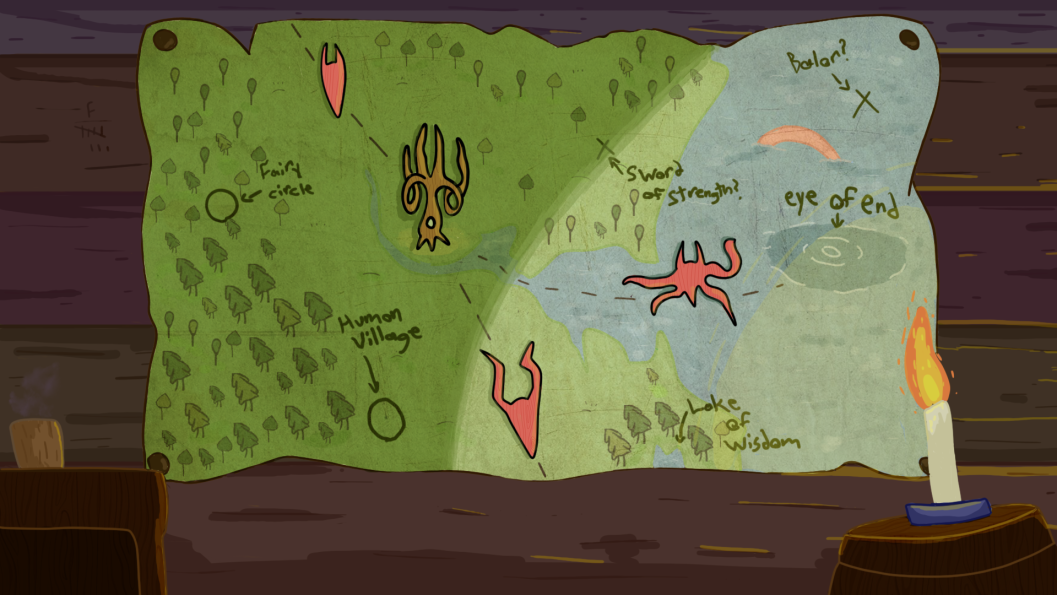 Balor?
F
Fairy
circle
Sword
of Strength?
eye of end
Human
Village
Lake
of
Wisdom